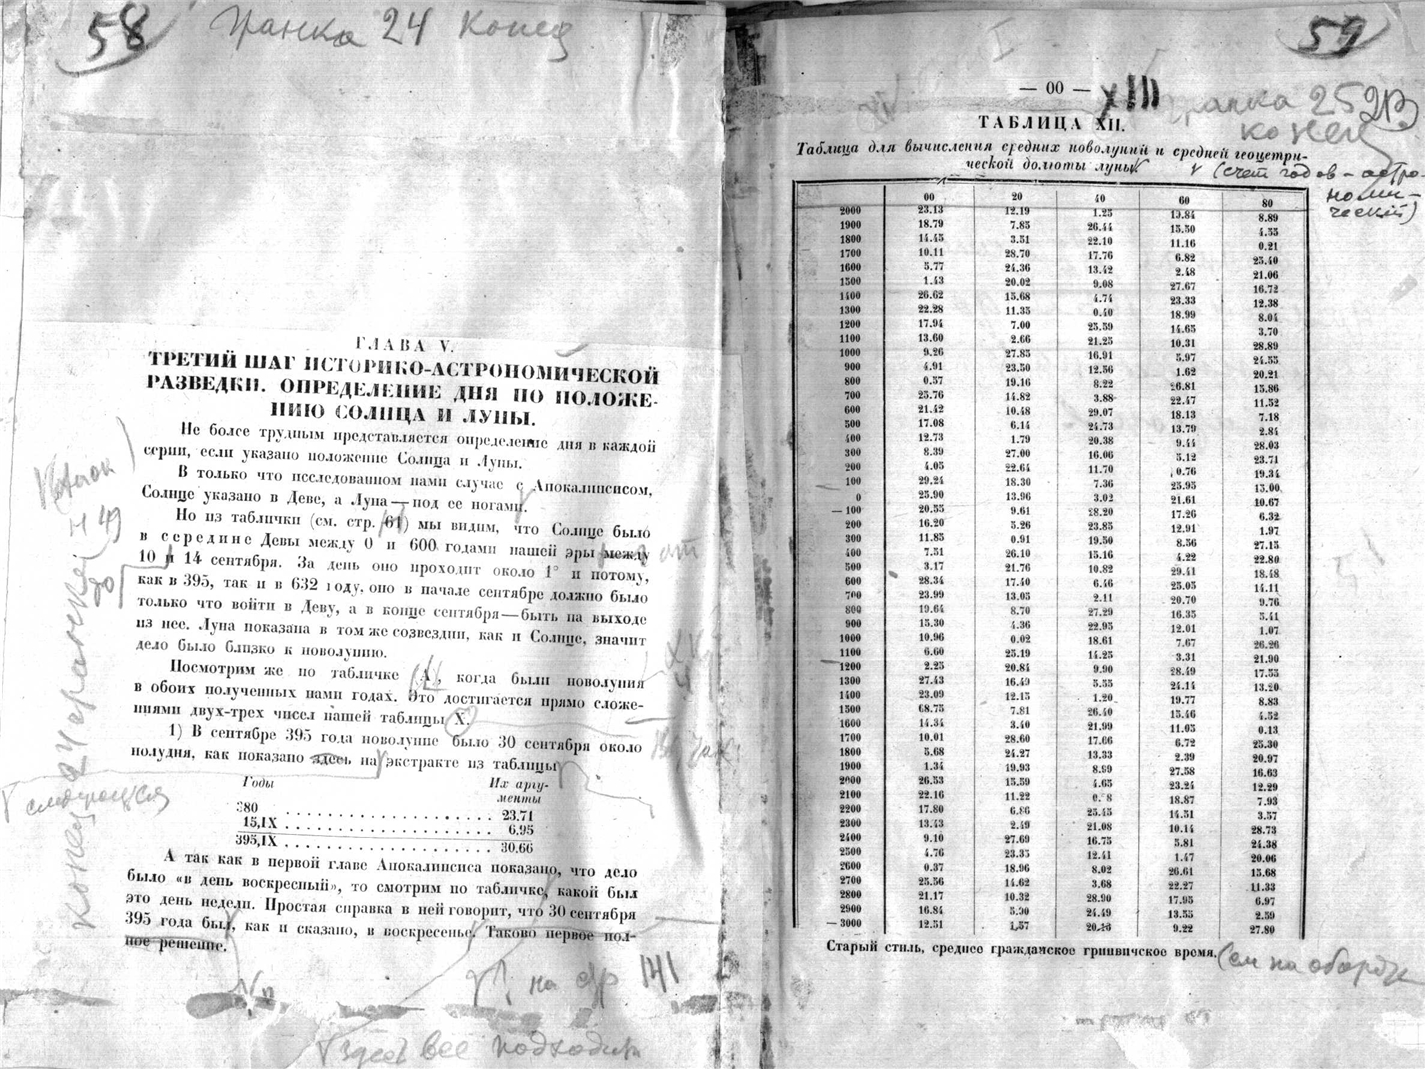 58 Гранка 24 конец
ГЛАВА V.
ТРЕТИЙ ШАГ ИСТОРИКО-АСТРОНОМИЧЕСКОЙ
РАЗВЕДКИ. ОПРЕДЕЛЕНИЕ ДНЯ ПО ПОЛОЖЕ-
НИЮ СОЛНЦА И ЛУНЫ.
Не более трудным представляется определение дня в каждой
серии, если указано положение Солнца и Луны.
В только что исследованном нами случае с Апокалипсисом,
Солнце указано в Деве, а Луна — под ее ногами.
Но из таблички (см. стр. 61) мы видим, что Солнце было
в середине Девы между 0 и 600 годами нашей эры между
10 и 14 сентября. За день оно проходит около 1° и потому,
как в 395, так и в 632 году, оно в начале сентября должно было
только что войти в Деву, а в конце сентября — быть на выходе
из нее. Луна показана в том же созвездии, как и Солнце, значит
дело было близко к новолунию.
Посмотрим же по табличке , когда были новолуния
в обоих полученных нами годах. Это достигается прямо сложе-
ниями двух-трех чисел нашей таблицы X.
1) В сентябре 395 года новолуние было 30 сентября около
полудня, как показано здесь на экстракте из таблицы
Годы Их аргу-
менты
380 . . . . . . . . . . . . . . . . . . . . 23.71
15,IX . . . . . . . . . . . . . . . . . . . . 6.95
395,IX . . . . . . . . . . . . . . . . . . . . 30.66
А так как в первой главе Апокалипсиса показано, что дело
было «в день воскресный», то смотрим по табличке, какой был
это день недели. Простая справка в ней говорит, что 30 сентября
395 года был, как и сказано, в воскресенье. Таково первое пол-
ное решение.
на стр 141
здесь все подходит
59
— 00 —
XIII
Гранка 25
конец
ТАБЛИЦА XII.
Таблица для вычисления средних новолуний и средней геоцетри-
ческой долготы луны
(счет годов - астро-
номи-
ческий)
00 20 40 60 80
2000 23.13 12.19 1.25 19.84 8.89
1900 18.79 7.85 26.44 15.50 4.55
1800 14.45 3.51 22.10 11.16 0.21
1700 10.11 28.70 17.76 6.82 25.40
1600 5.77 24.36 13.42 2.48 21.06
1500 1.43 20.02 9.08 27.67 16.72
1400 26.62 15.68 4.74 23.33 12.38
1300 22.28 11.35 0.40 18.99 8.04
1200 17.94 7.00 25.59 14.65 3.70
1100 13.60 2.66 21.25 10.31 28.89
1000 9.26 27.85 16.91 5.97 24.55
900 4.91 23.50 12.56 1.62 20.21
800 0.57 19.16 8.22 26.81 15.86
700 25.76 14.82 3.88 22.47 11.52
600 21.42 10.48 29.07 18.13 7.18
500 17.08 6.14 24.73 13.79 2.84
400 12.73 1.79 20.38 9.44 28.03
300 8.39 27.00 16.06 5.12 23.71
200 4.05 22.64 11.70 0.76 19.34
100 29.24 18.30 7.36 25.95 15.00
0 25.90 13.96 3.02 21.61 10.67
— 100 20.55 9.61 28.20 17.26 6.32
200 16.20 5.26 23.85 12.91 1.97
300 11.85 0.91 19.50 8.56 27.15
400 7.51 26.10 15.16 4.22 22.80
500 3.17 21.76 10.82 29.41 18.48
600 28.34 17.40 6.46 25.05 14.11
700 23.99 13.05 2.11 20.70 9.76
800 19.64 8.70 27.29 16.35 5.41
900 15.30 4.36 22.95 12.01 1.07
1000 10.96 0.02 18.61 7.67 26.26
1100 6.60 25.19 14.25 3.31 21.90
1200 2.25 20.84 9.90 28.49 17.55
1300 27.43 16.49 5.55 24.14 13.20
1400 23.09 12.15 1.20 19.77 8.83
1500 68.75 7.81 26.40 15.46 4.52
1600 14.34 3.40 21.99 11.05 0.13
1700 10.01 28.60 17.66 6.72 25.30
1800 5.68 24.27 13.33 2.39 20.97
1900 1.34 19.93 8.99 27.58 16.63
2000 26.53 15.59 4.65 23.24 12.29
2100 22.16 11.22 18.87 7.93
2200 17.80 6.86 25.45 14.51 3.57
2300 13.43 2.49 21.08 10.14 28.73
2400 9.10 27.69 16.75 5.81 24.38
2500 4.76 23.35 12.41 1.47 20.06
2600 0.37 18.96 8.02 26.61 15.68
2700 25.56 14.62 3.68 22.27 11.33
2800 21.17 10.32 28.90 17.95 6.97
2900 16.84 5.90 24.49 13.55 2.59
— 3000 12.51 1.57 20.16 9.22 27.80
Старый стиль, среднее гражданское гринвичское время.
(см на обороте